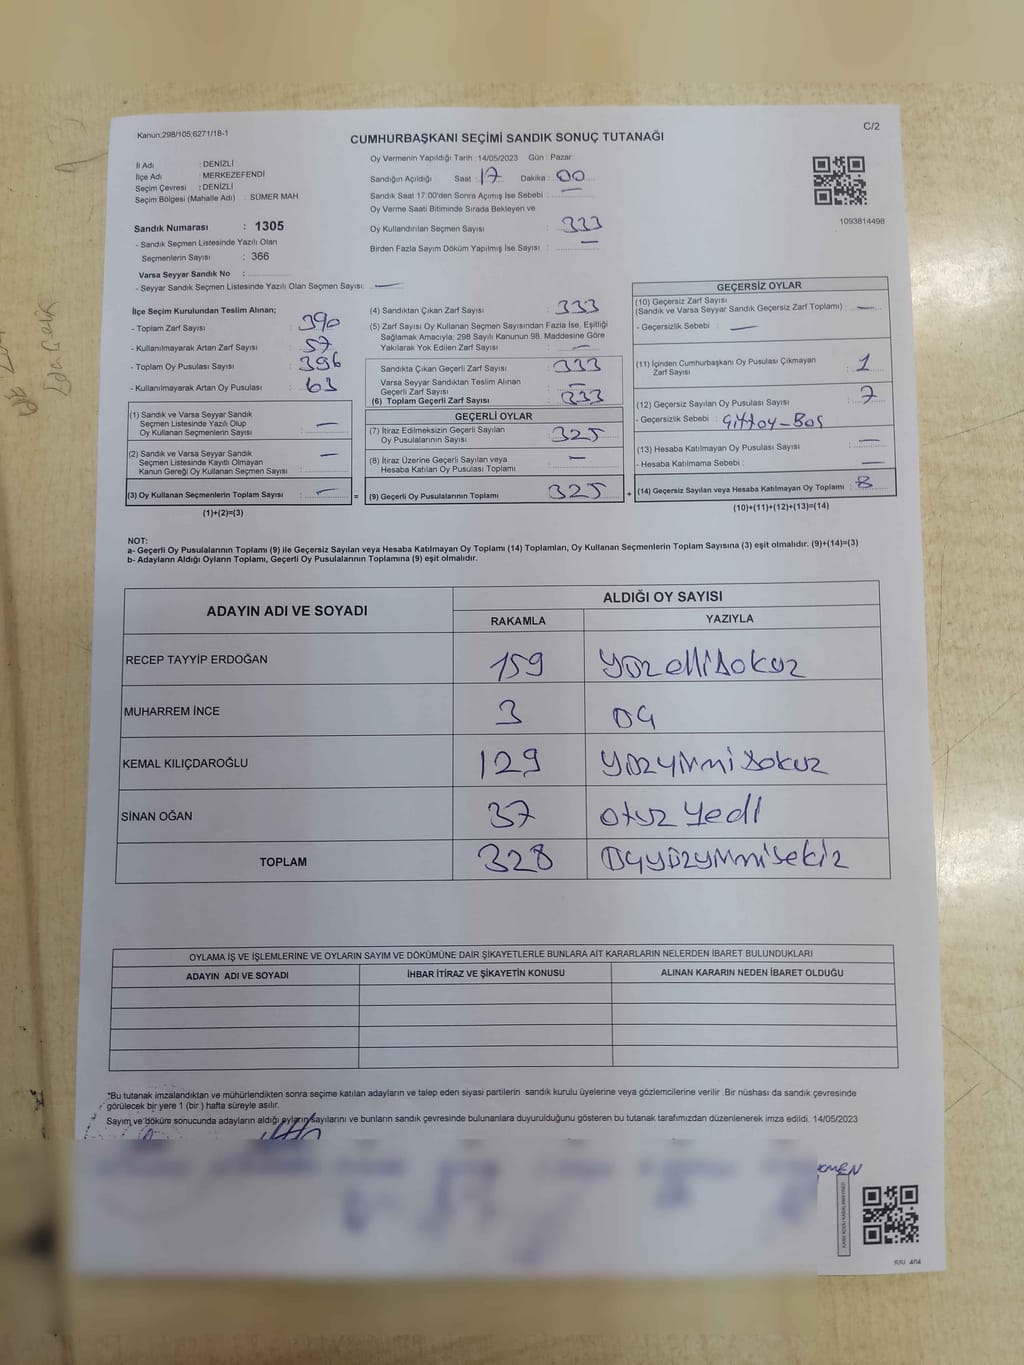 Kanun;298/105;6271/18-1
C/2
CUMHURBAŞKANI SEÇİMİ SANDIK SONUÇ TUTANAĞI
İl Adı : DENİZLİ
İlçe Adı : MERKEZEFENDİ
Seçim Çevresi : DENİZLİ
Seçim Bölgesi (Mahalle Adı) : SÜMER MAH
Sandık Numarası : 1305
- Sandık Seçmen Listesinde Yazılı Olan
Seçmenlerin Sayısı : 366
Varsa Seyyar Sandık No :
- Seyyar Sandık Seçmen Listesinde Yazılı Olan Seçmen Sayısı: —
Oy Vermenin Yapıldığı Tarih :14/05/2023 Gün : Pazar
Sandığın Açıldığı Saat : 17 Dakika : 00
Sandık Saat 17.00'den Sonra Açımış İse Sebebi : —
Oy Verme Saati Bitiminde Sırada Bekleyen ve
Oy Kullandırılan Seçmen Sayısı : 333
Birden Fazla Sayım Döküm Yapılmış İse Sayısı : —
1093814498
İlçe Seçim Kurulundan Teslim Alınan;
- Toplam Zarf Sayısı : 390
- Kullanılmayarak Artan Zarf Sayısı : 57
- Toplam Oy Pusulası Sayısı : 396
- Kullanılmayarak Artan Oy Pusulası : 63
(1) Sandık ve Varsa Seyyar Sandık
Seçmen Listesinde Yazılı Olup
Oy Kullanan Seçmenlerin Sayısı : —
(2) Sandık ve Varsa Seyyar Sandık
Seçmen Listesinde Kayıtlı Olmayan
Kanun Gereği Oy Kullanan Seçmen Sayısı : —
(3) Oy Kullanan Seçmenlerin Toplam Sayısı : —
(1)+(2)=(3)
=
(4) Sandıktan Çıkan Zarf Sayısı : 333
(5) Zarf Sayısı Oy Kullanan Seçmen Sayısından Fazla İse, Eşitliği
Sağlamak Amacıyla; 298 Sayılı Kanunun 98. Maddesine Göre
Yakılarak Yok Edilen Zarf Sayısı : —
Sandıkta Çıkan Geçerli Zarf Sayısı : 333
Varsa Seyyar Sandıktan Teslim Alınan
Geçerli Zarf Sayısı : —
(6) Toplam Geçerli Zarf Sayısı : 333
GEÇERLİ OYLAR
(7) İtiraz Edilmeksizin Geçerli Sayılan
Oy Pusulalarının Sayısı : 325
(8) İtiraz Üzerine Geçerli Sayılan veya
Hesaba Katılan Oy Pusulası Toplamı : —
(9) Geçerli Oy Pusulalarının Toplamı : 325
+
GEÇERSİZ OYLAR
(10) Geçersiz Zarf Sayısı
(Sandık ve Varsa Seyyar Sandık Geçersiz Zarf Toplamı) : —
- Geçersizlik Sebebi : —
(11) İçinden Cumhurbaşkanı Oy Pusulası Çıkmayan
Zarf Sayısı : 1
(12) Geçersiz Sayılan Oy Pusulası Sayısı : 7
- Geçersizlik Sebebi : Çift oy - Boş
(13) Hesaba Katılmayan Oy Pusulası Sayısı : —
- Hesaba Katılmama Sebebi : —
(14) Geçersiz Sayılan veya Hesaba Katılmayan Oy Toplamı : 8
(10)+(11)+(12)+(13)=(14)
NOT:
a- Geçerli Oy Pusulalarının Toplamı (9) ile Geçersiz Sayılan veya Hesaba Katılmayan Oy Toplamı (14) Toplamları, Oy Kullanan Seçmenlerin Toplam Sayısına (3) eşit olmalıdır. (9)+(14)=(3)
b- Adayların Aldığı Oyların Toplamı, Geçerli Oy Pusulalarının Toplamına (9) eşit olmalıdır.
ADAYIN ADI VE SOYADI
ALDIĞI OY SAYISI
RAKAMLA YAZIYLA
RECEP TAYYİP ERDOĞAN 159 Yüz elli dokuz
MUHARREM İNCE 3 üç
KEMAL KILIÇDAROĞLU 129 Yüzyirmi dokuz
SİNAN OĞAN 37 otuz yedi
TOPLAM 328 üçyüzyirmi sekiz
OYLAMA İŞ VE İŞLEMLERİNE VE OYLARIN SAYIM VE DÖKÜMÜNE DAİR ŞİKAYETLERLE BUNLARA AİT KARARLARIN NELERDEN İBARET BULUNDUKLARI
ADAYIN ADI VE SOYADI İHBAR İTİRAZ VE ŞİKAYETİN KONUSU ALINAN KARARIN NEDEN İBARET OLDUĞU
*Bu tutanak imzalandıktan ve mühürlendikten sonra seçime katılan adayların ve talep eden siyasi partilerin sandık kurulu üyelerine veya gözlemcilerine verilir .Bir nüshası da sandık çevresinde
görülecek bir yere 1 (bir ) hafta süreyle asılır.
Sayım ve döküm sonucunda adayların aldığı oyların sayılarını ve bunların sandık çevresinde bulunanlara duyurulduğunu gösteren bu tutanak tarafımızdan düzenlenerek imza edildi. 14/05/2023